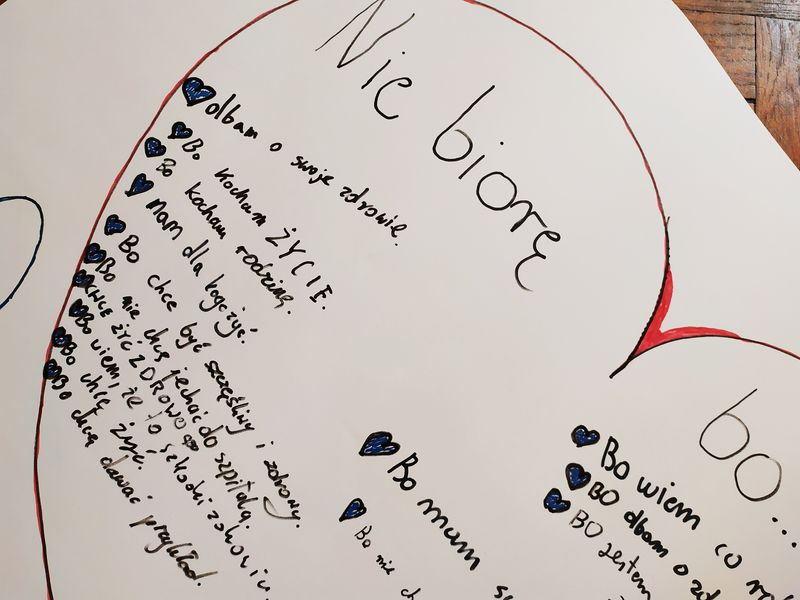 Nie biorę
bo...
dbam o swoje zdrowie.
Bo kocham ŻYCIE.
Bo kocham rodzinę.
mam dla kogo żyć.
Bo chce być szczęśliwy i zdrowy.
Bo nie chcę jechać do szpitala.
CHCE ŻYĆ ZDROWO
Bo wiem, że to szkodzi zdrowiu
Bo chcę żyć.
Bo chcę dawać przykład.
Bo mam
Bo nie
BO wiem co
BO dbam o
BO jestem